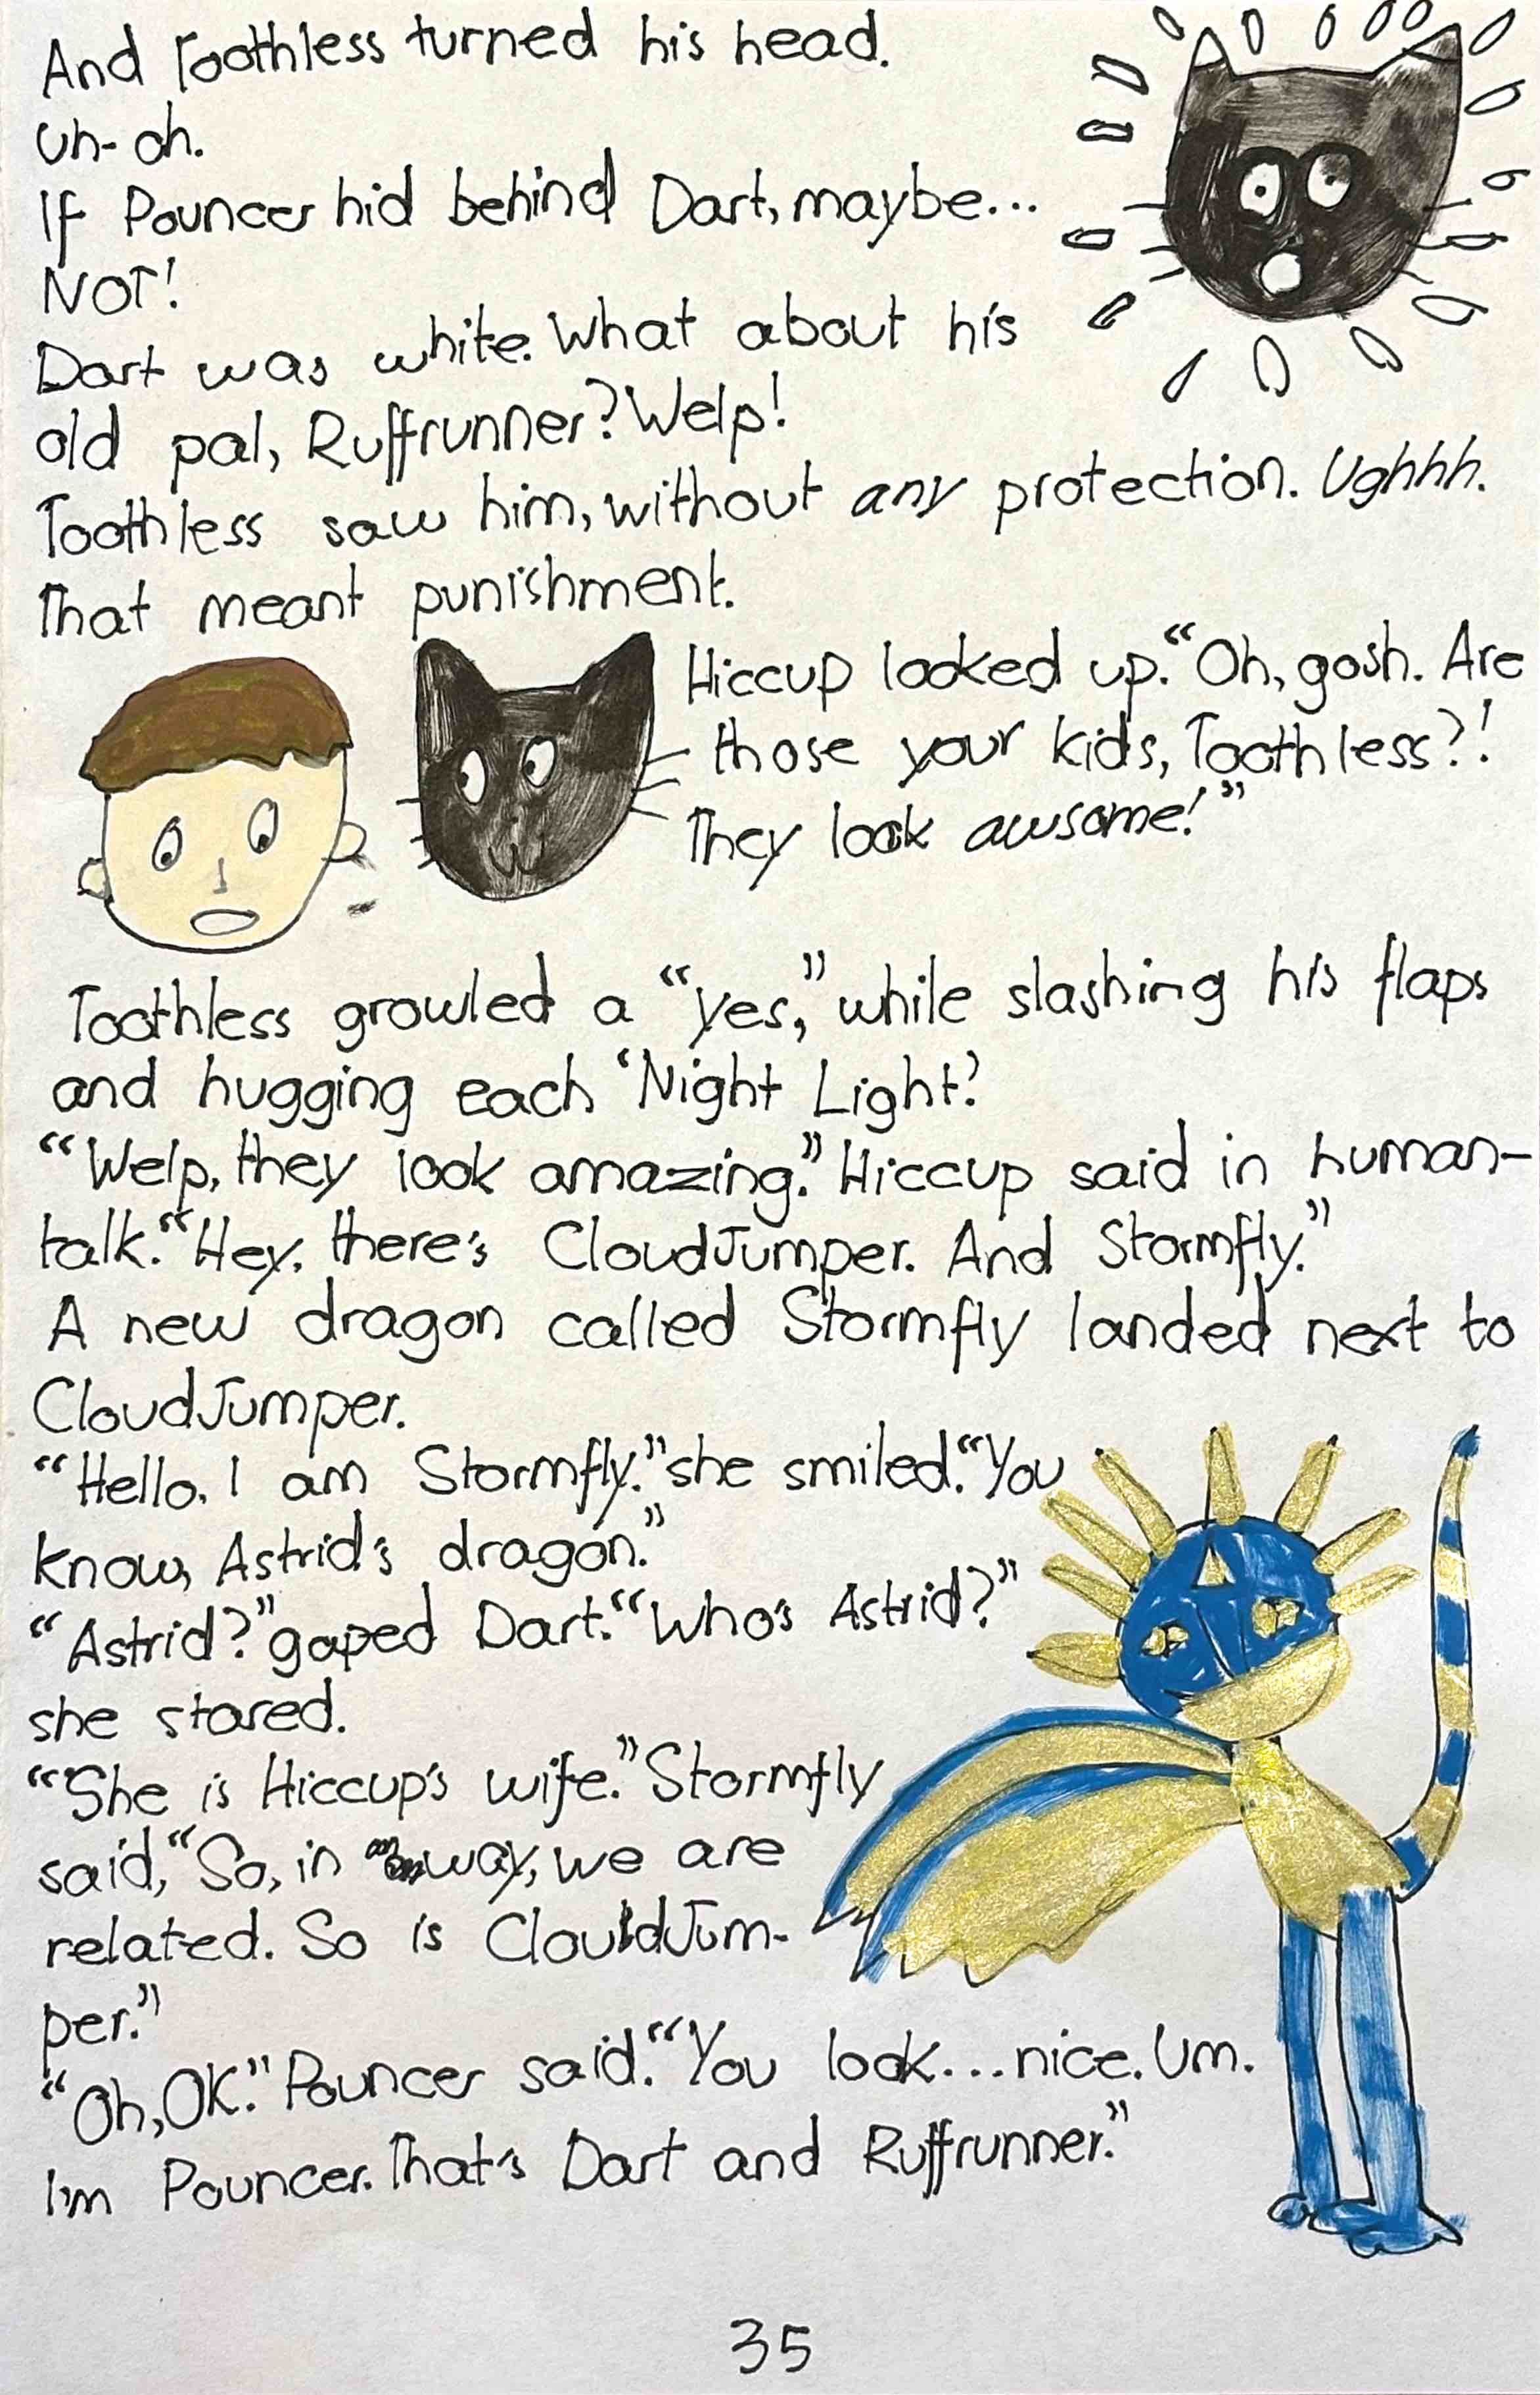 And Toothless turned his head.
Uh-oh.
If Pouncer hid behind Dart, maybe...
NOT!
Dart was white. What about his
old pal, Ruffrunner? Welp!
Toothless saw him, without any protection. Ughhh.
That meant punishment.
Hiccup looked up. “Oh, gosh. Are
those your kids, Toothless?!
They look awsome!”
Toothless growled a “yes,” while slashing his flaps
and hugging each ‘Night Light’.
“Welp, they look amazing.” Hiccup said in human-
talk. “Hey, there's CloudJumper. And Stormfly.”
A new dragon called Stormfly landed next to
CloudJumper.
“Hello. I am Stormfly.” she smiled. “You
know, Astrid's dragon.”
“Astrid?” gaped Dart. “Who's Astrid?”
she stared.
“She is Hiccup's wife.” Stormfly
said, “So, in way, we are
related. So is CloudJum-
per.”
“Oh, OK.” Pouncer said. “You look... nice. Um.
I'm Pouncer. That's Dart and Ruffrunner.”
35